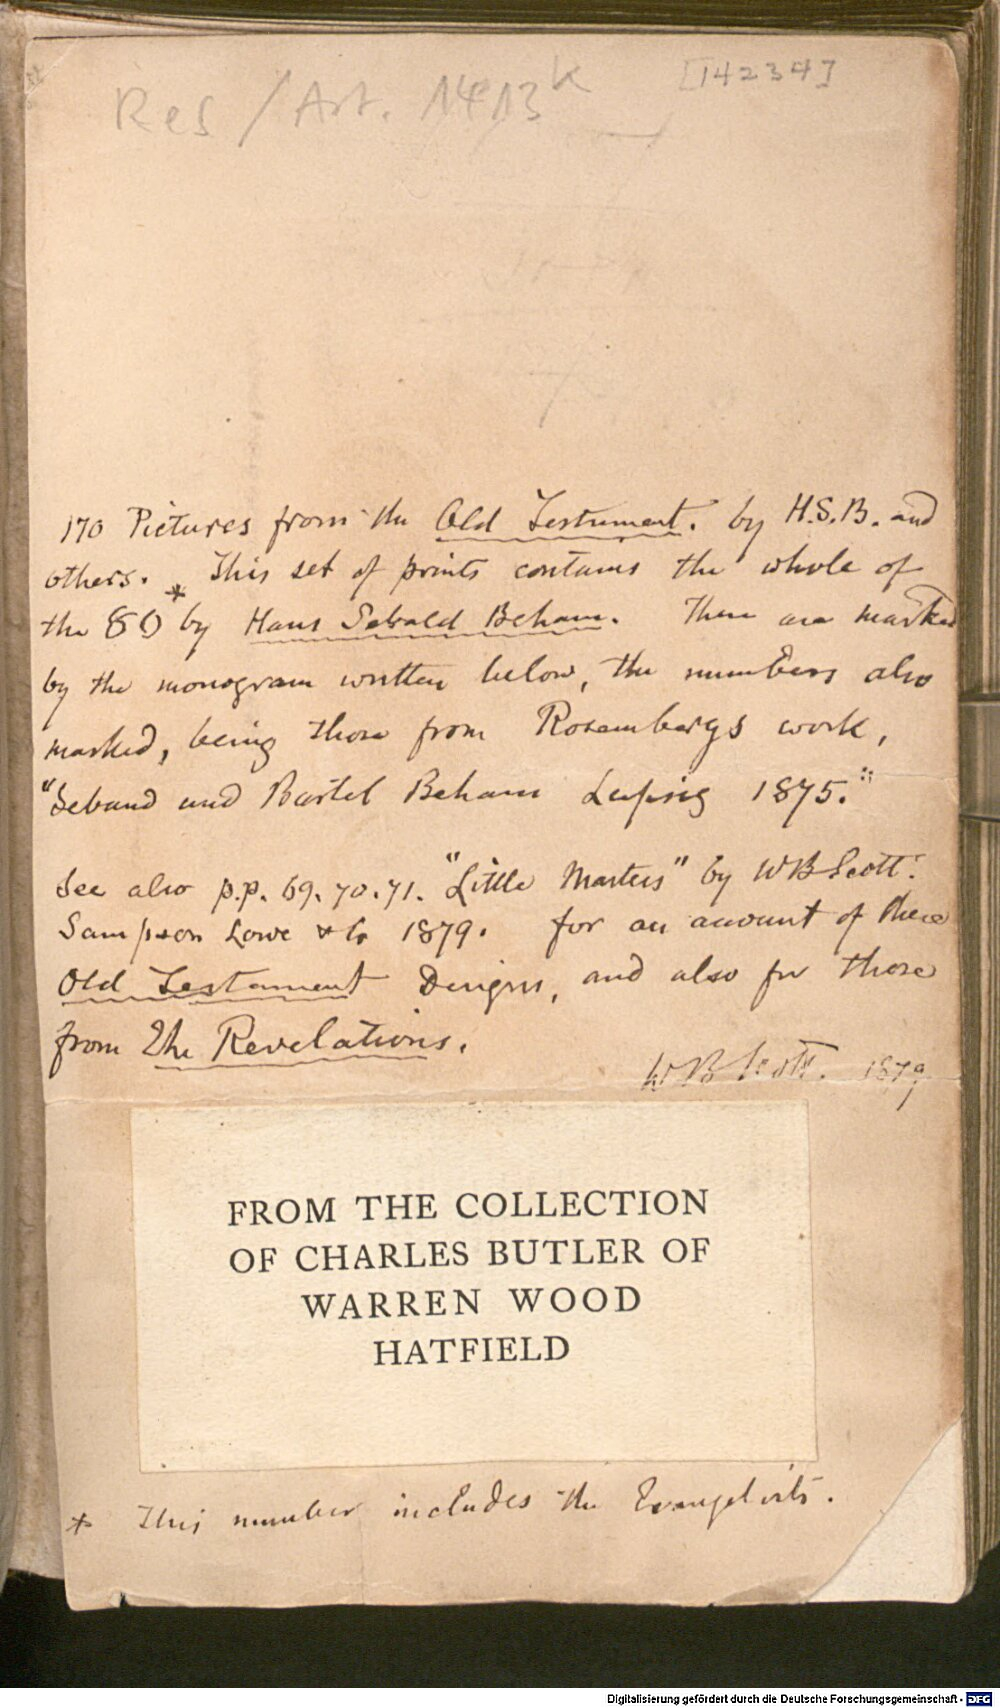 [14234]
Res / Art. 1413k
170 Pictures from the Old Testament. by H.S.B. and
others. This set of prints contains the whole of
the 80 * by Hans Sebald Beham. These are marked
by the monogram written below, the numbers also
marked, being those from Rosembergs work,
"Seband und Bartel Beham Leipsig 1875."
See also p.p. 69. 70. 71. "Little Masters" by WB Scott.
Sampson Lowe & Co 1879. for an account of these
Old Testament Designs, and also for those
from The Revelations.
W B Scott. 1879
FROM THE COLLECTION
OF CHARLES BUTLER OF
WARREN WOOD
HATFIELD
* This number includes the Evangelists.
Digitalisierung gefördert durch die Deutsche Forschungsgemeinschaft - DFG